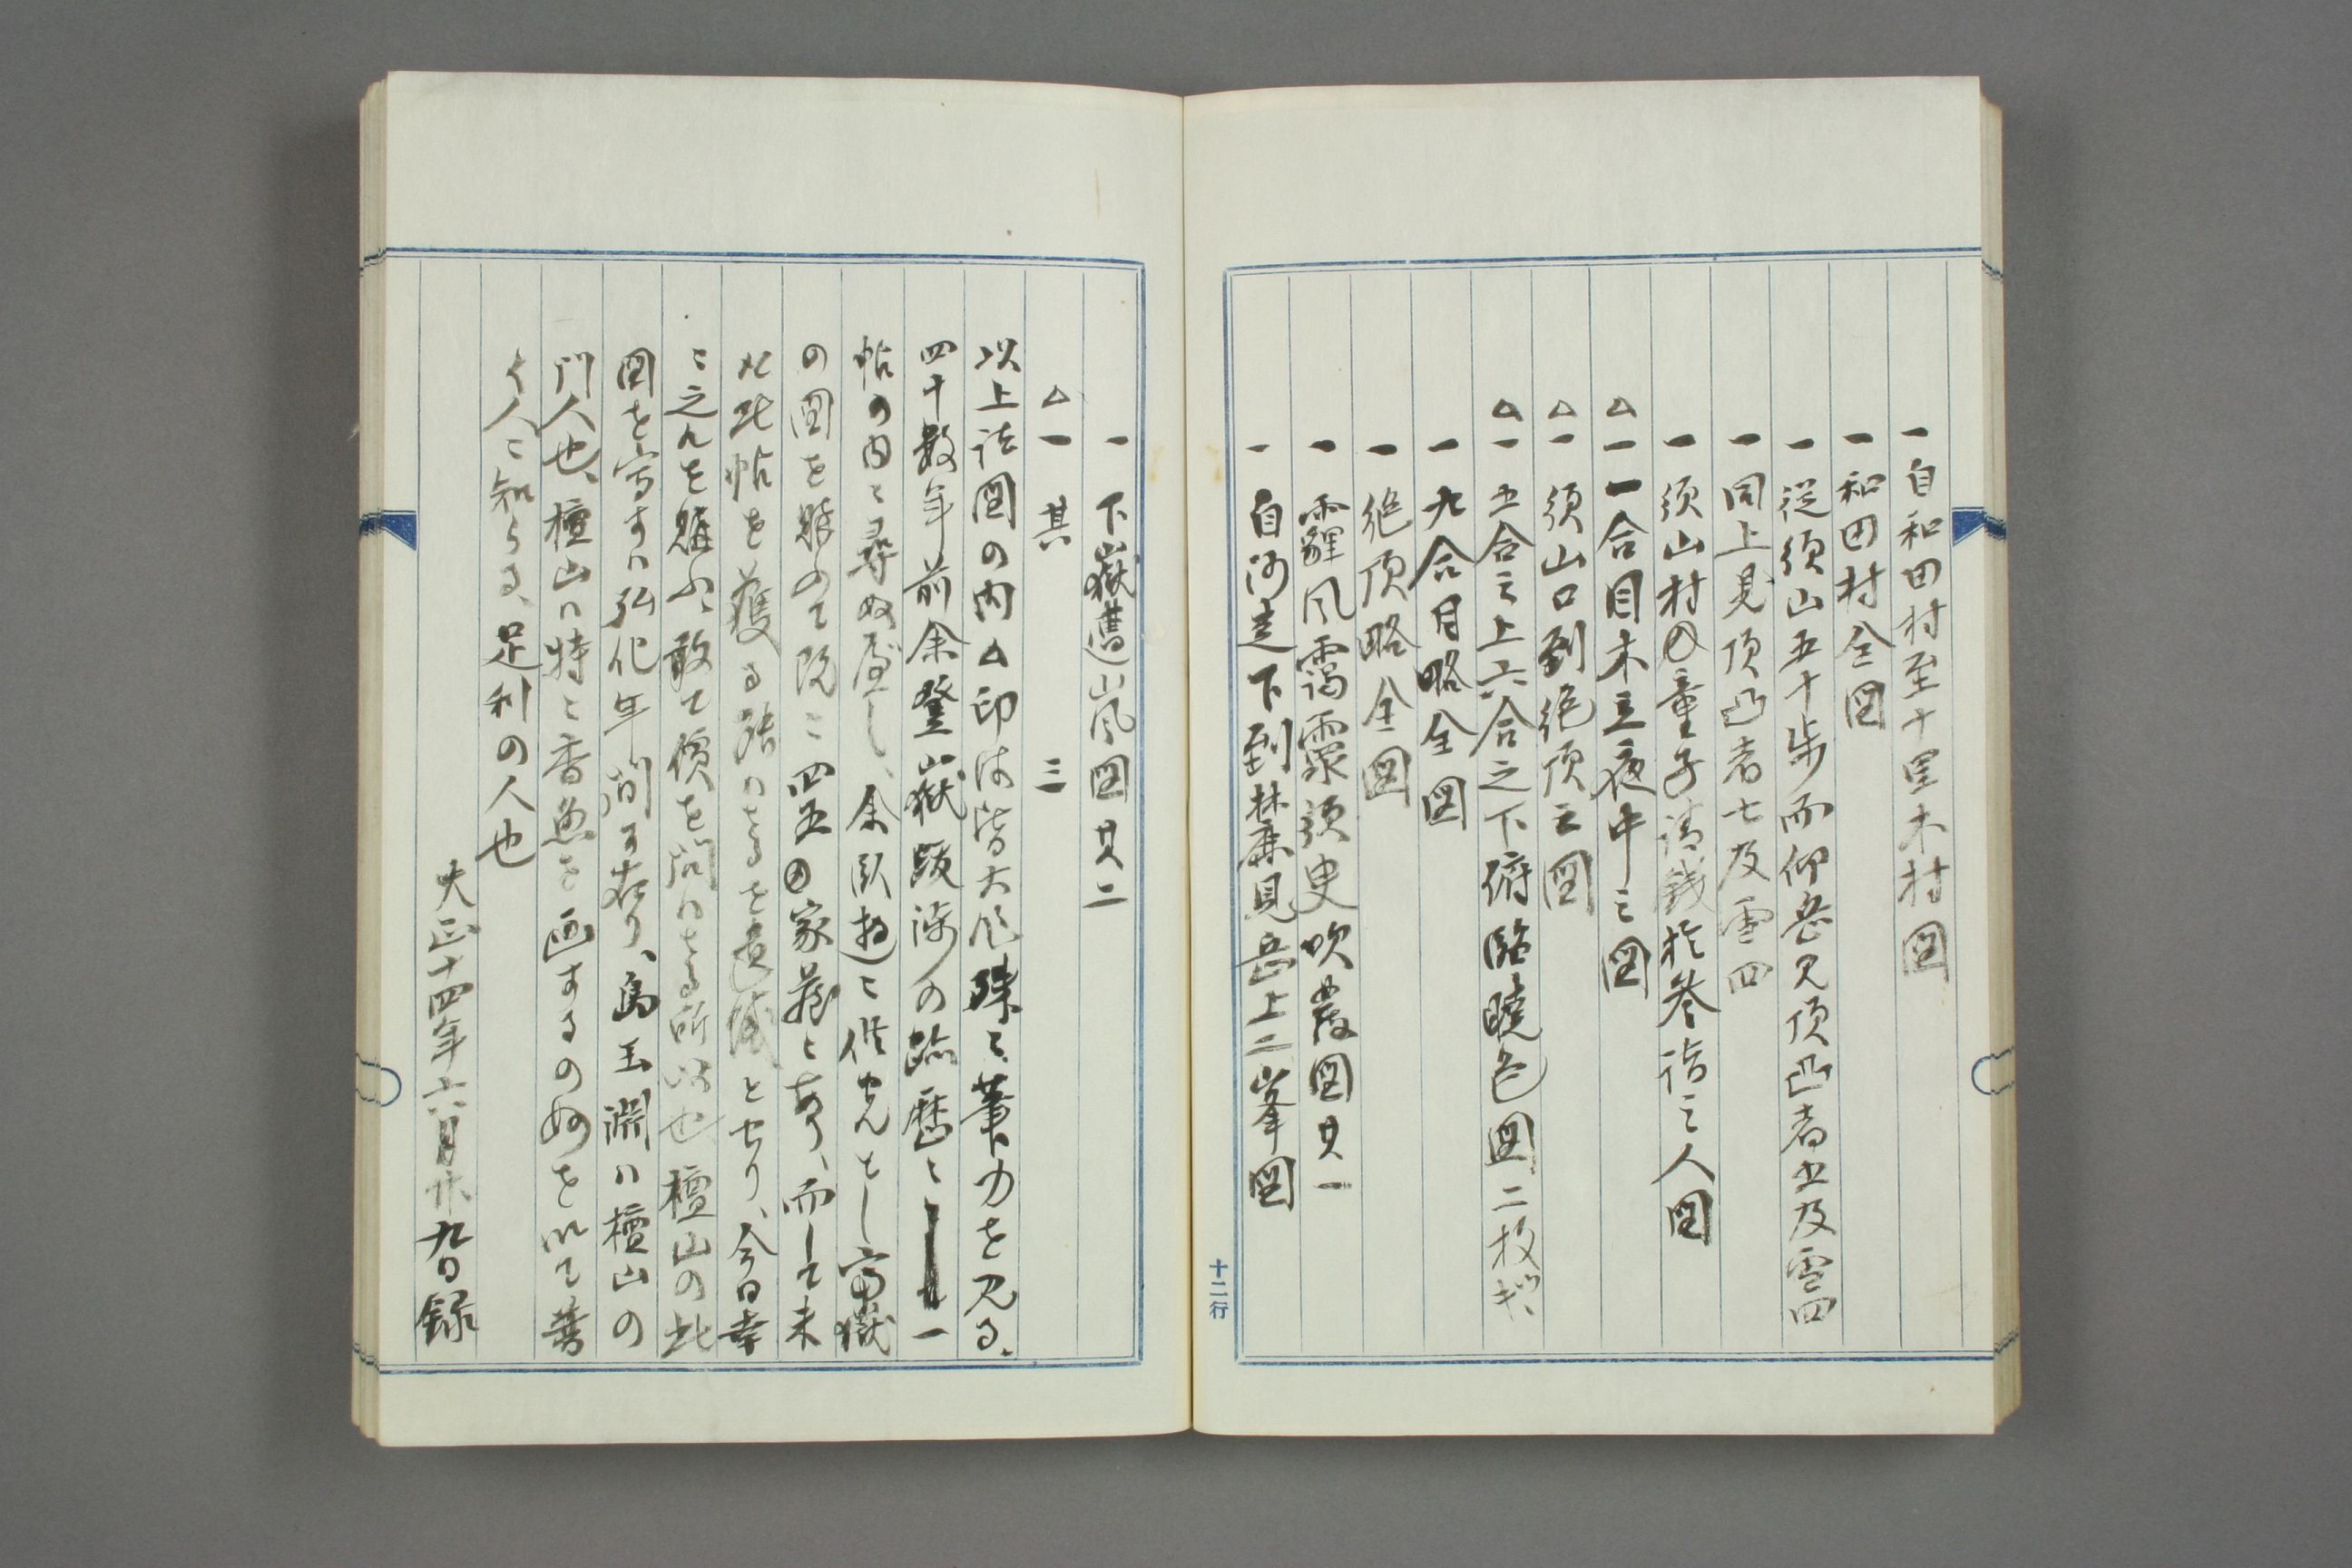 一 自和田村至十里木村図
一 和田村全図
一 従須山五十歩而仰岳見頂凸者五及雪四
一 同上見頂凸者七及雪四
一 須山村の童子請銭於参詣之人図
△一 一合目木立夜中之図
△一 須山口到絶頂之図
△一 五合之上六合之下俯臨暁色図二枚
一 九合目略全図
一 絶頂略全図
一 風靄 須臾吹散図其一
一 自沙走下到林麻見岳上二峯図
十二行
一 下嶽遭山風図其二
△一 其 三
以上諸図の内△印は皆大 殊に筆力を見る、
四十数年前余登山嶽跋渉の跡歴 一
帖の内に尋ぬ し、余臥遊に供せんとし富嶽
の図を購めて既に四五の家蔵とあり、而して未
た此帖を獲る さるを遺憾とせり、今日幸
に之れを購ふ、敢て價を問はさる所以也檀山の此
図を寫すハ弘化年間に在り、島玉淵ハ檀山の
門人也、檀山ハ特に香魚を画するの妙を以て普
く人に知らる、足利の人也
大正十四年六月廿九日録